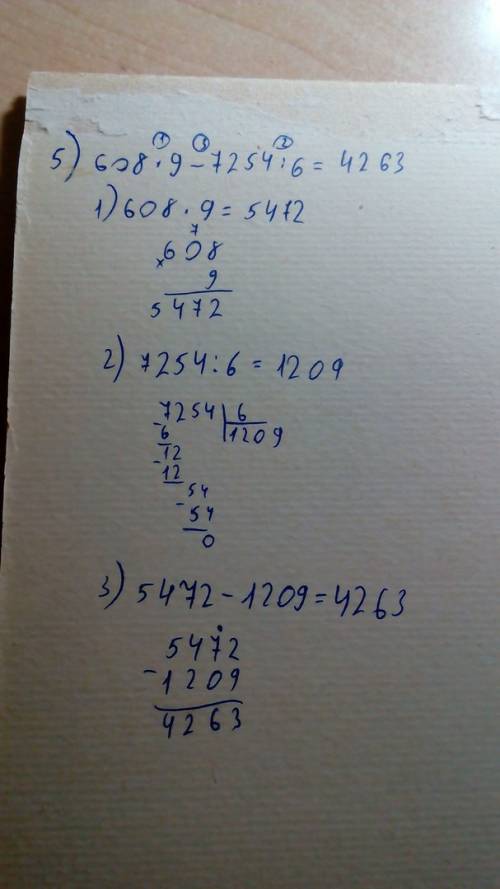 ① ③ ②
5) 608 · 9 - 7254 : 6 = 4263
1) 608 · 9 = 5472
7
608
× 9
5472
2) 7254 : 6 = 1209
- 7254 | 6
6 1209
12
- 12
54
- 54
0
3) 5472 - 1209 = 4263
5472
- 1209
4263